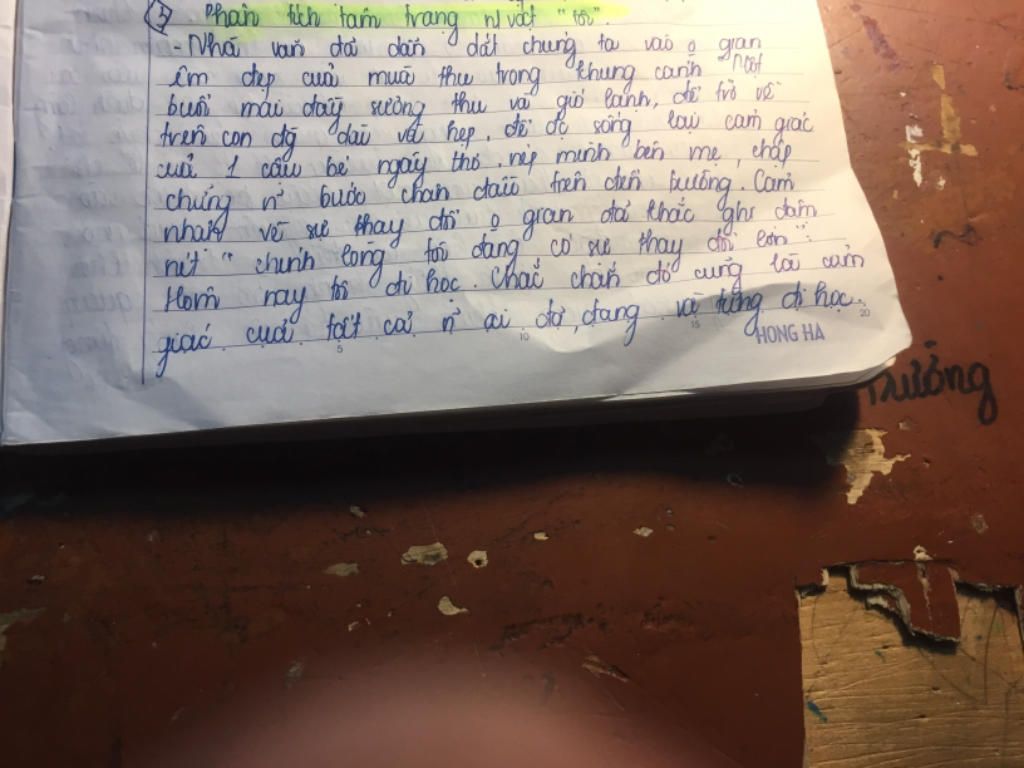 3 Phân tích tâm trạng n/vật "tôi".
- Nhà văn đã dẫn dắt chúng ta vào o gian
êm đẹp của mùa thu trong khung cảnh một
buổi mai đầy sương thu và gió lạnh, để trở về
trên con đg dài và hẹp. để đc sống lại cảm giác
của 1 cậu bé ngây thơ. nép mình bên mẹ, chập
chững n~ bước chân đầu trên đến trường. Cảm
nhận về sự thay đổi o gian đã khắc ghi đậm
nét "chính lòng tôi đang có sự thay đổi lớn":
Hôm nay tôi đi học. Chắc chắn đó cũng là cảm
giác của tất cả n~ ai đã, đang và từng đi học.
5 10 15 20
HONG HA
Trường